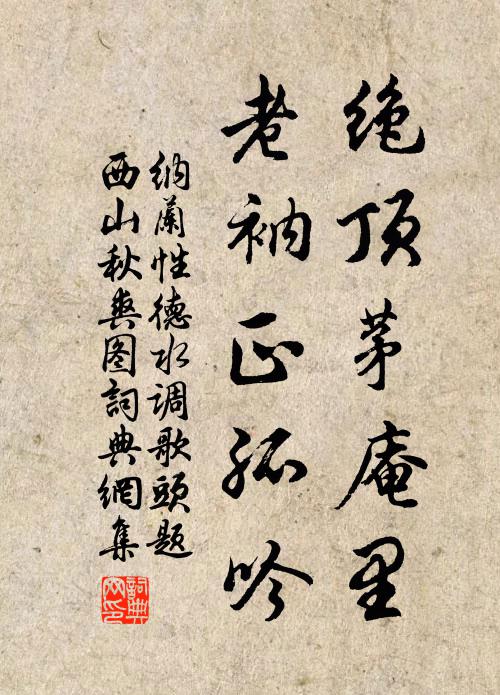 绝顶茅庵里
老衲正孤吟
纳兰性德水调歌头题
西山秋爽图词典網集
詞典网印